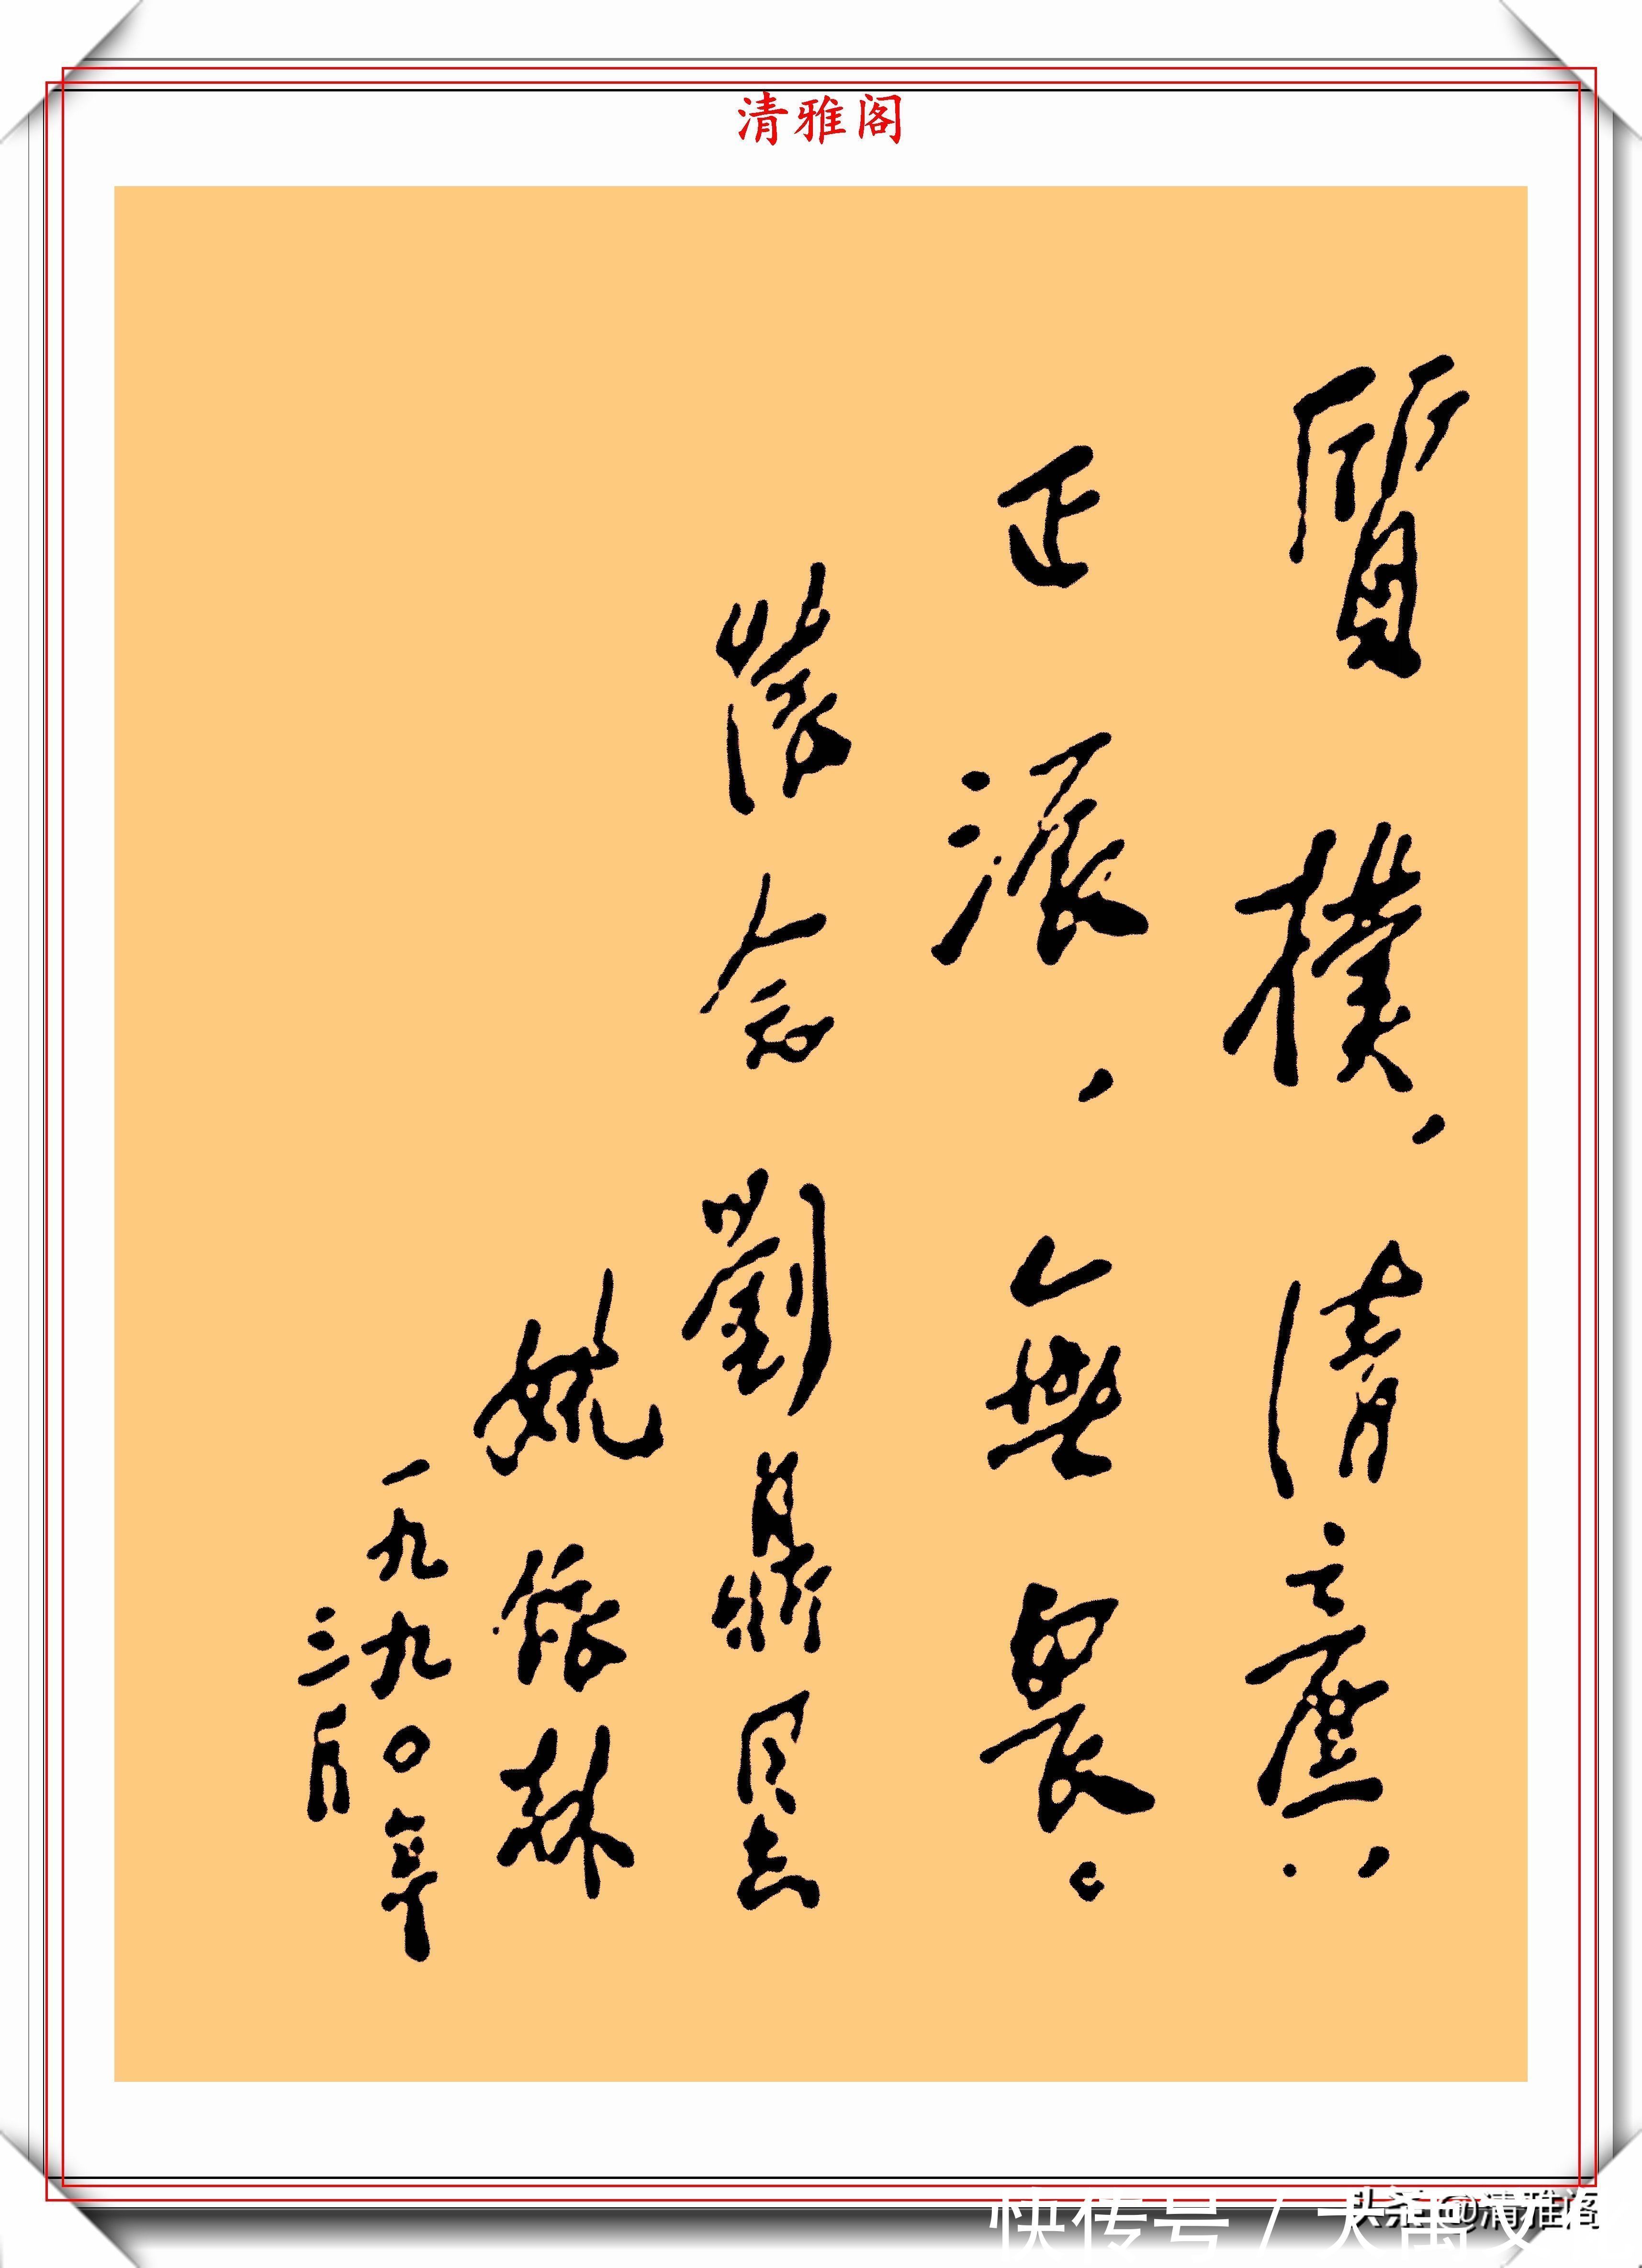 清雅阁
質樸，清廉，
正派，無畏。
懷念劉鼎同志
姚依林
一九九〇年
二月
头条 @清雅阁
快传号 / 大禹文化